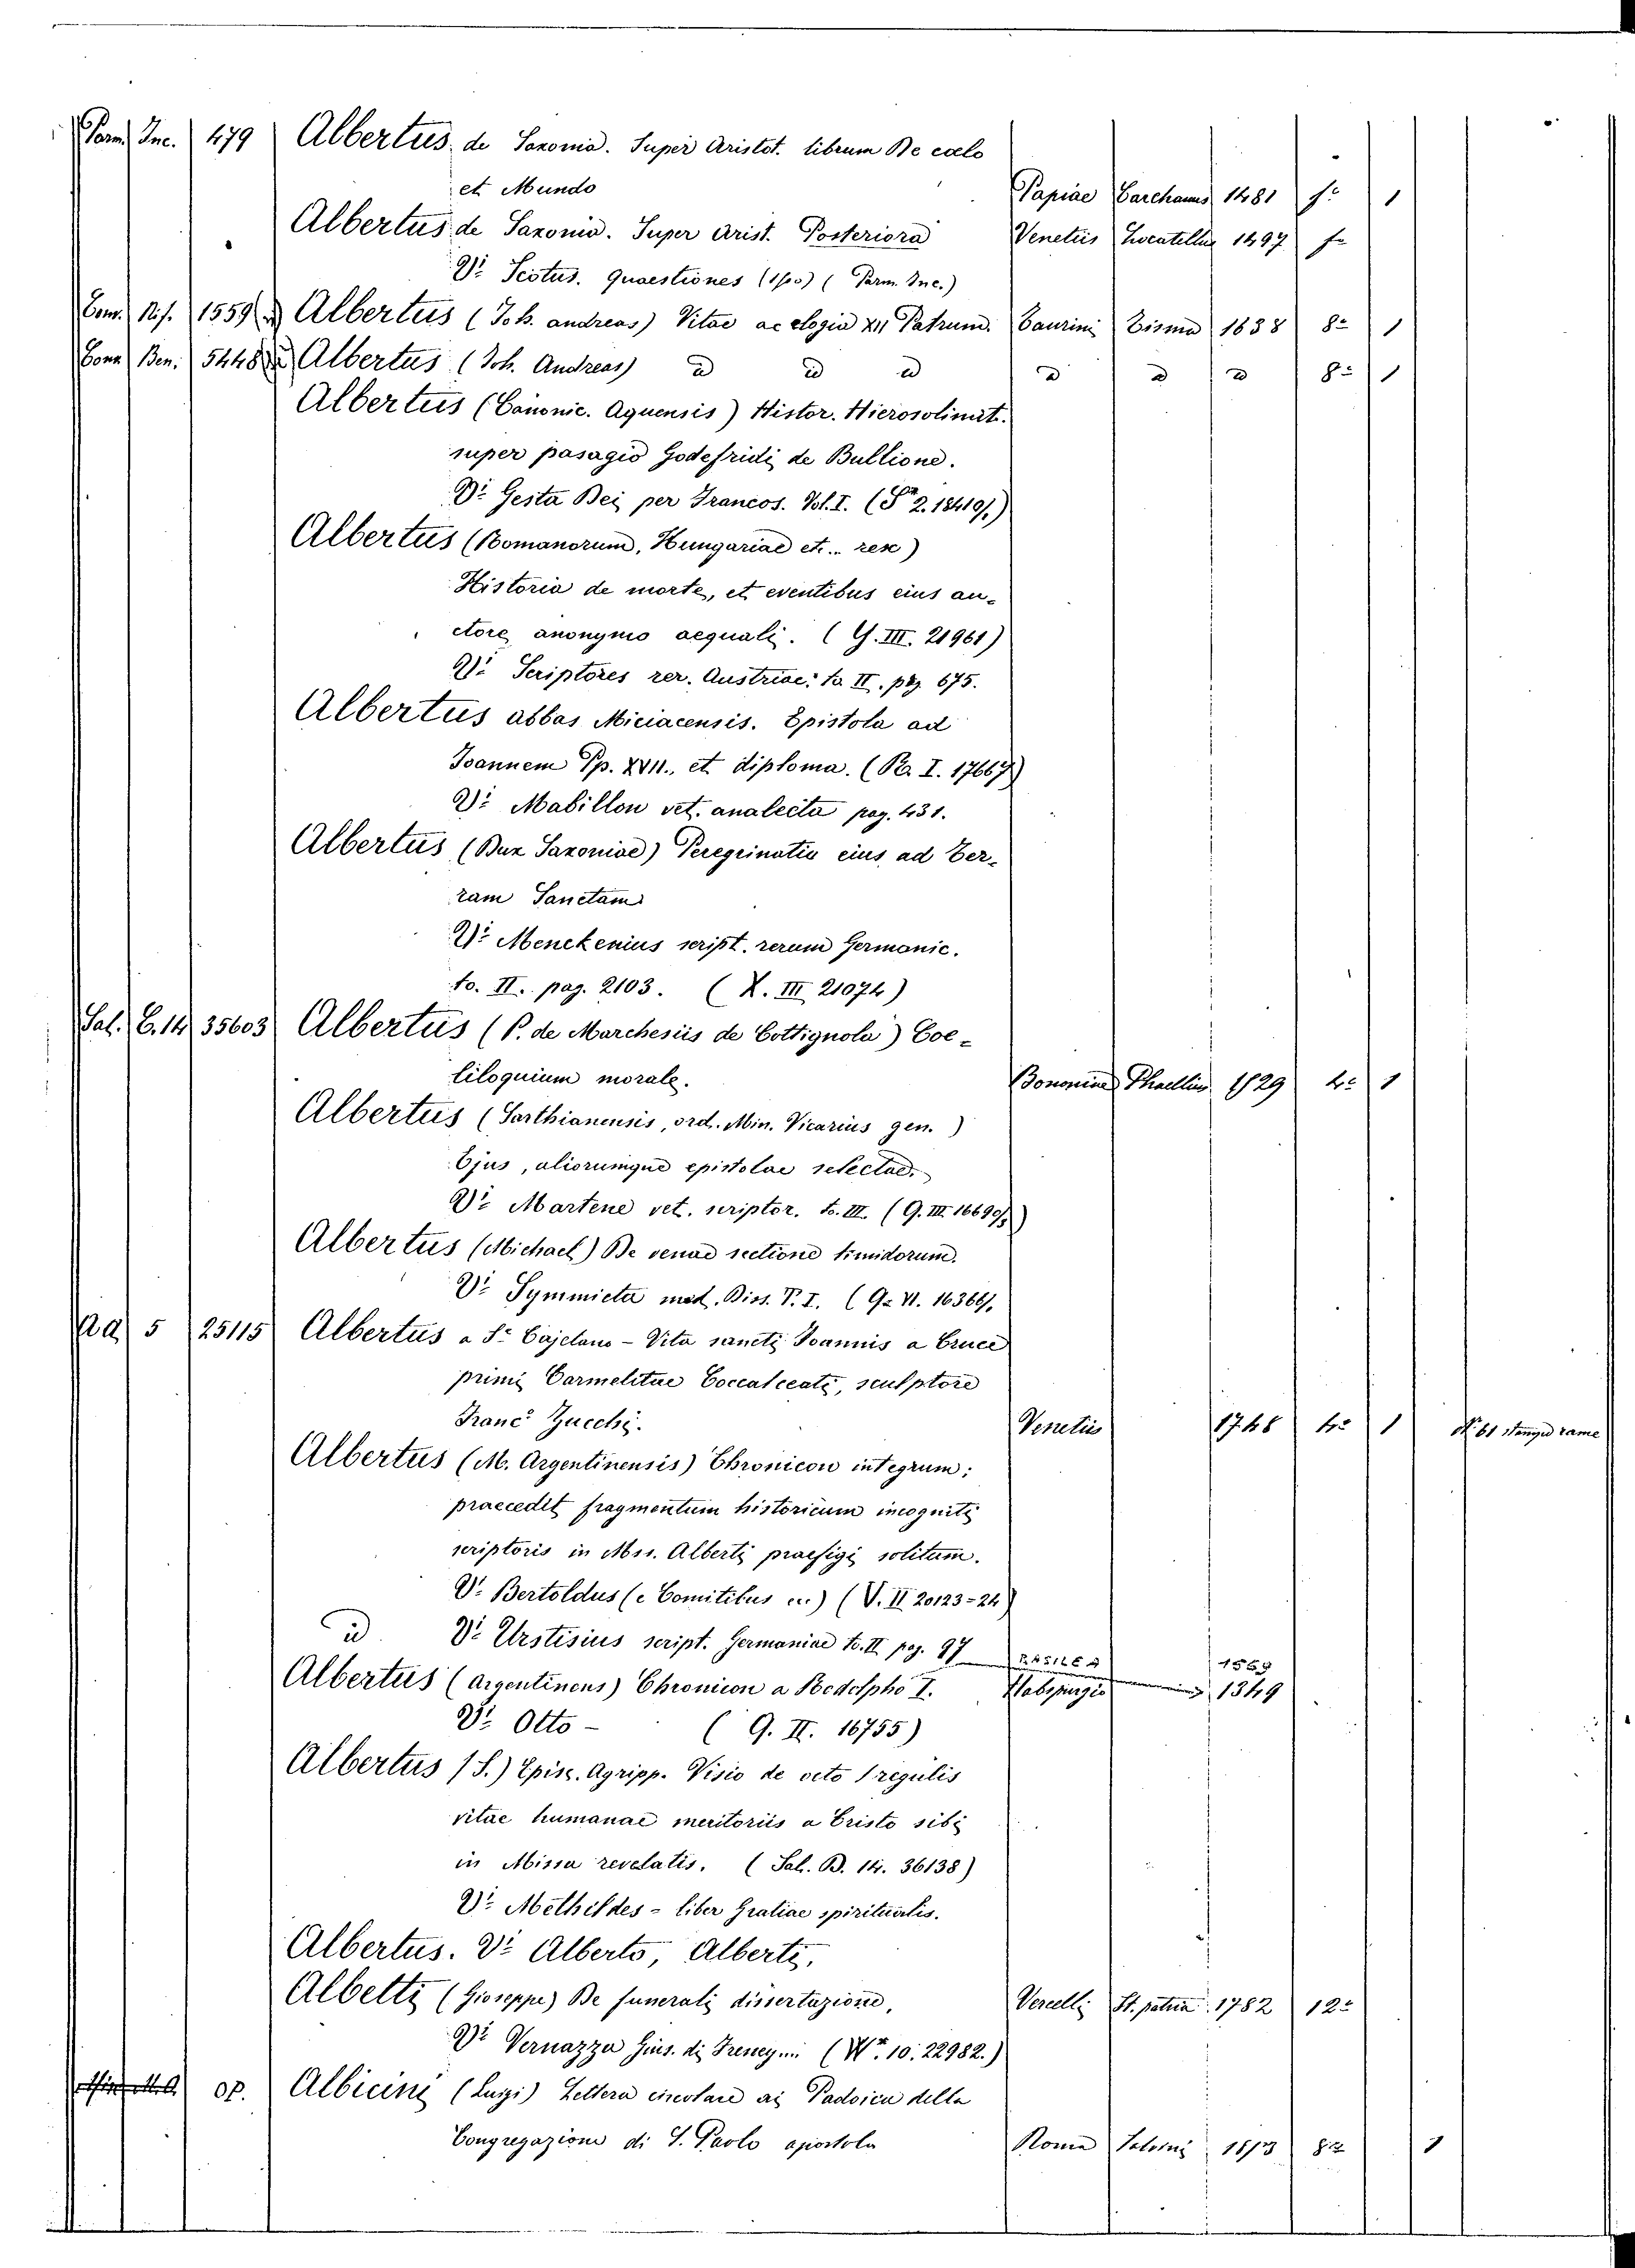 Parm. Inc. 479 Albertus de Saxonia. Super Aristot. librum De coelo
et Mundo Papiae Carchanus 1481 f.º 1
Albertus de Saxonia. Super Arist. Posteriora Venetiis Locatellus 1497 fº
Vi Scotus. Quaestiones (1500) (Parm. Inc.)
1559 Albertus (Joh. Andreas) Vitae ac elogia XII Patrum. Taurini Tisma 1638 8º 1
Ben. 5448 Albertus (Joh. Andreas) id id id id id id 8º 1
Albertus (Canonic. Aquensis) Histor. Hierosolimit.
super pasagio Godefridi de Bullione.
Vi Gesta Dei per Francos. Vol. I. (Sª 2. 18410/1)
Albertus (Romanorum, Hungariae et... rex)
Historia de morte, et eventibus eius au-
ctore anonymo aequali. (Y. III. 21961)
Vi Scriptores rer. Austriac: to. II. pag. 675.
Albertus abbas Miciacensis. Epistola ad
Joannem Pp. XVII., et diploma. (R. I. 17667)
Vi Mabillon vet. analecta pag. 431.
Albertus (Dux Saxoniae) Peregrinatio eius ad Ter-
ram Sanctam
Vi Menckenius script. rerum Germanic.
to. II. pag. 2103. (X. III 21074)
Sal. C. 14 35603 Albertus (P. de Marchesiis de Cottignola) Coe-
liloquium morale. Bononiae Phaellius 1529 4º 1
Albertus (Sarthianensis, ord. Min. Vicarius gen.)
Ejus, aliorumque epistolae selectae.
Vi Martene vet. scriptor. to. III. (Q. III. 16690/5)
Albertus (Michael) De venae sectione timidorum.
Vi Symmicta med. Diss. V. I. (Qº VI. 16366/1
5 25115 Albertus a Sº Cajetano - Vita sancti Joannis a Cruce
primi Carmelitae Coccalceati, sculptore
Francº Zucchi. Venetiis 1748 4º 1 Nº 61 stampe rame
Albertus (M. Argentinensis) Chronicon integrum;
praecedit fragmentum historicum incogniti
scriptoris in Mss. Alberti praefigi solitum.
Vi Bertoldus (e Comitibus ec.) (V. II 20123=24)
id. Vi Urstisius script. Germaniae to. II pag. 97 BASILEA 1569
Albertus (Argentinens) Chronicon a Rodolpho I. Habspurgio 1349
Vi Otto - (Q. II. 16755)
Albertus (S.) Episc. Agripp. Visio de octo regulis
vitae humanae meritoriis a Cristo sibi
in Missa revelatis. (Sal. B. 14. 36138)
Vi Methildes - liber Gratiae spiritualis.
Albertus. Vi Alberto, Alberti,
Albetti (Gioseppe) De funerali dissertazione, Vercelli St. patria 1782 12º
Vi Vernazza Gius. di Freney... (Wª. 10. 22982.)
OP. Albicini (Luigi) Lettera circolare ai Padoici della
Congregazione di S. Paolo apostolo Roma Salvini 1813 8º 1